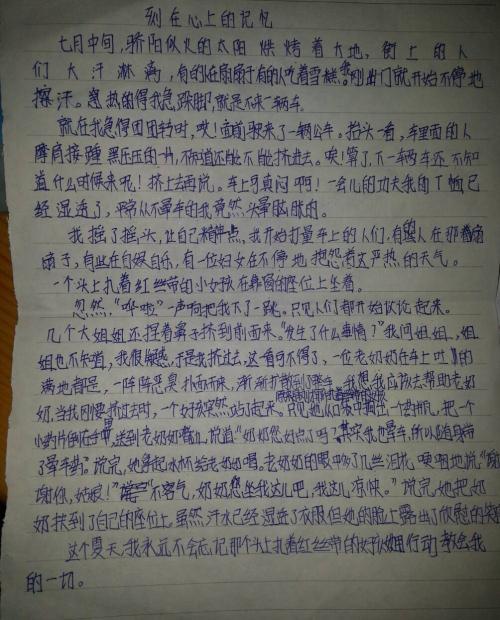 刻在心上的记忆
七月中间,骄阳似火的太阳烘烤着大地,街上的人
们大汗淋漓,有的在扇扇子有的吃着雪糕。我刚出门就开始不停地
擦汗。急热的得我急跺脚,就是不来一辆车。
就在我急得团团转时,哎!面前驶来了一辆公车。抬头一看,车里面的人
摩肩接踵 黑压压的一片,不知道还能不能挤进去。唉!算了,下一辆车还不知
道什么时候来呢!挤上去再说。车上可真闷啊!一会儿的功夫我的T恤已
经湿透了,平常从不晕车的我竟然头晕脑胀的。
我摇了摇头,让自己精神点,我开始打量车上的人们,有的人在那着扇
扇子,有些在自娱自乐,有一位妇女在不停地抱怨着这严热的天气。
一个头上扎着红丝带的小女孩在靠窗的座位上坐着。
忽然,“哗啦”一声响把我下了一跳。只见人们都开始议论起来。
几个大姐姐还捏着鼻子挤到前面来。“发生了什么事情?”我问姐姐,姐
姐也不知道,我很疑惑,于是我挤过去,这一看可不得了,一位老奶奶在车上吐的
满地都是,一阵阵恶臭扑面而来,渐渐扩散到了整车。我想我应该去帮助老奶
奶,当我刚要挤过去时,一个女孩突然站了起来。只见她从口袋中掏出一个药瓶,把一个
小药片倒在手里,送到老奶奶嘴边,说道“奶奶您好点了吗?其实我也晕车,所以随身带
了晕车药。”说完,她拿起水杯给老奶奶喝。老奶奶的眼中扬了几丝泪花 哽咽地说“谢
谢你,姑娘!”“不客气,奶奶您坐我这儿吧,我这儿凉快。”说完她把奶
奶扶到了自己的座位上,虽然,汗水已经湿透了衣服但她的脸上露出了欣慰的笑
这个夏天,我永远不会忘记那个头上扎着红丝带的女孩用行动教会我
的一切。